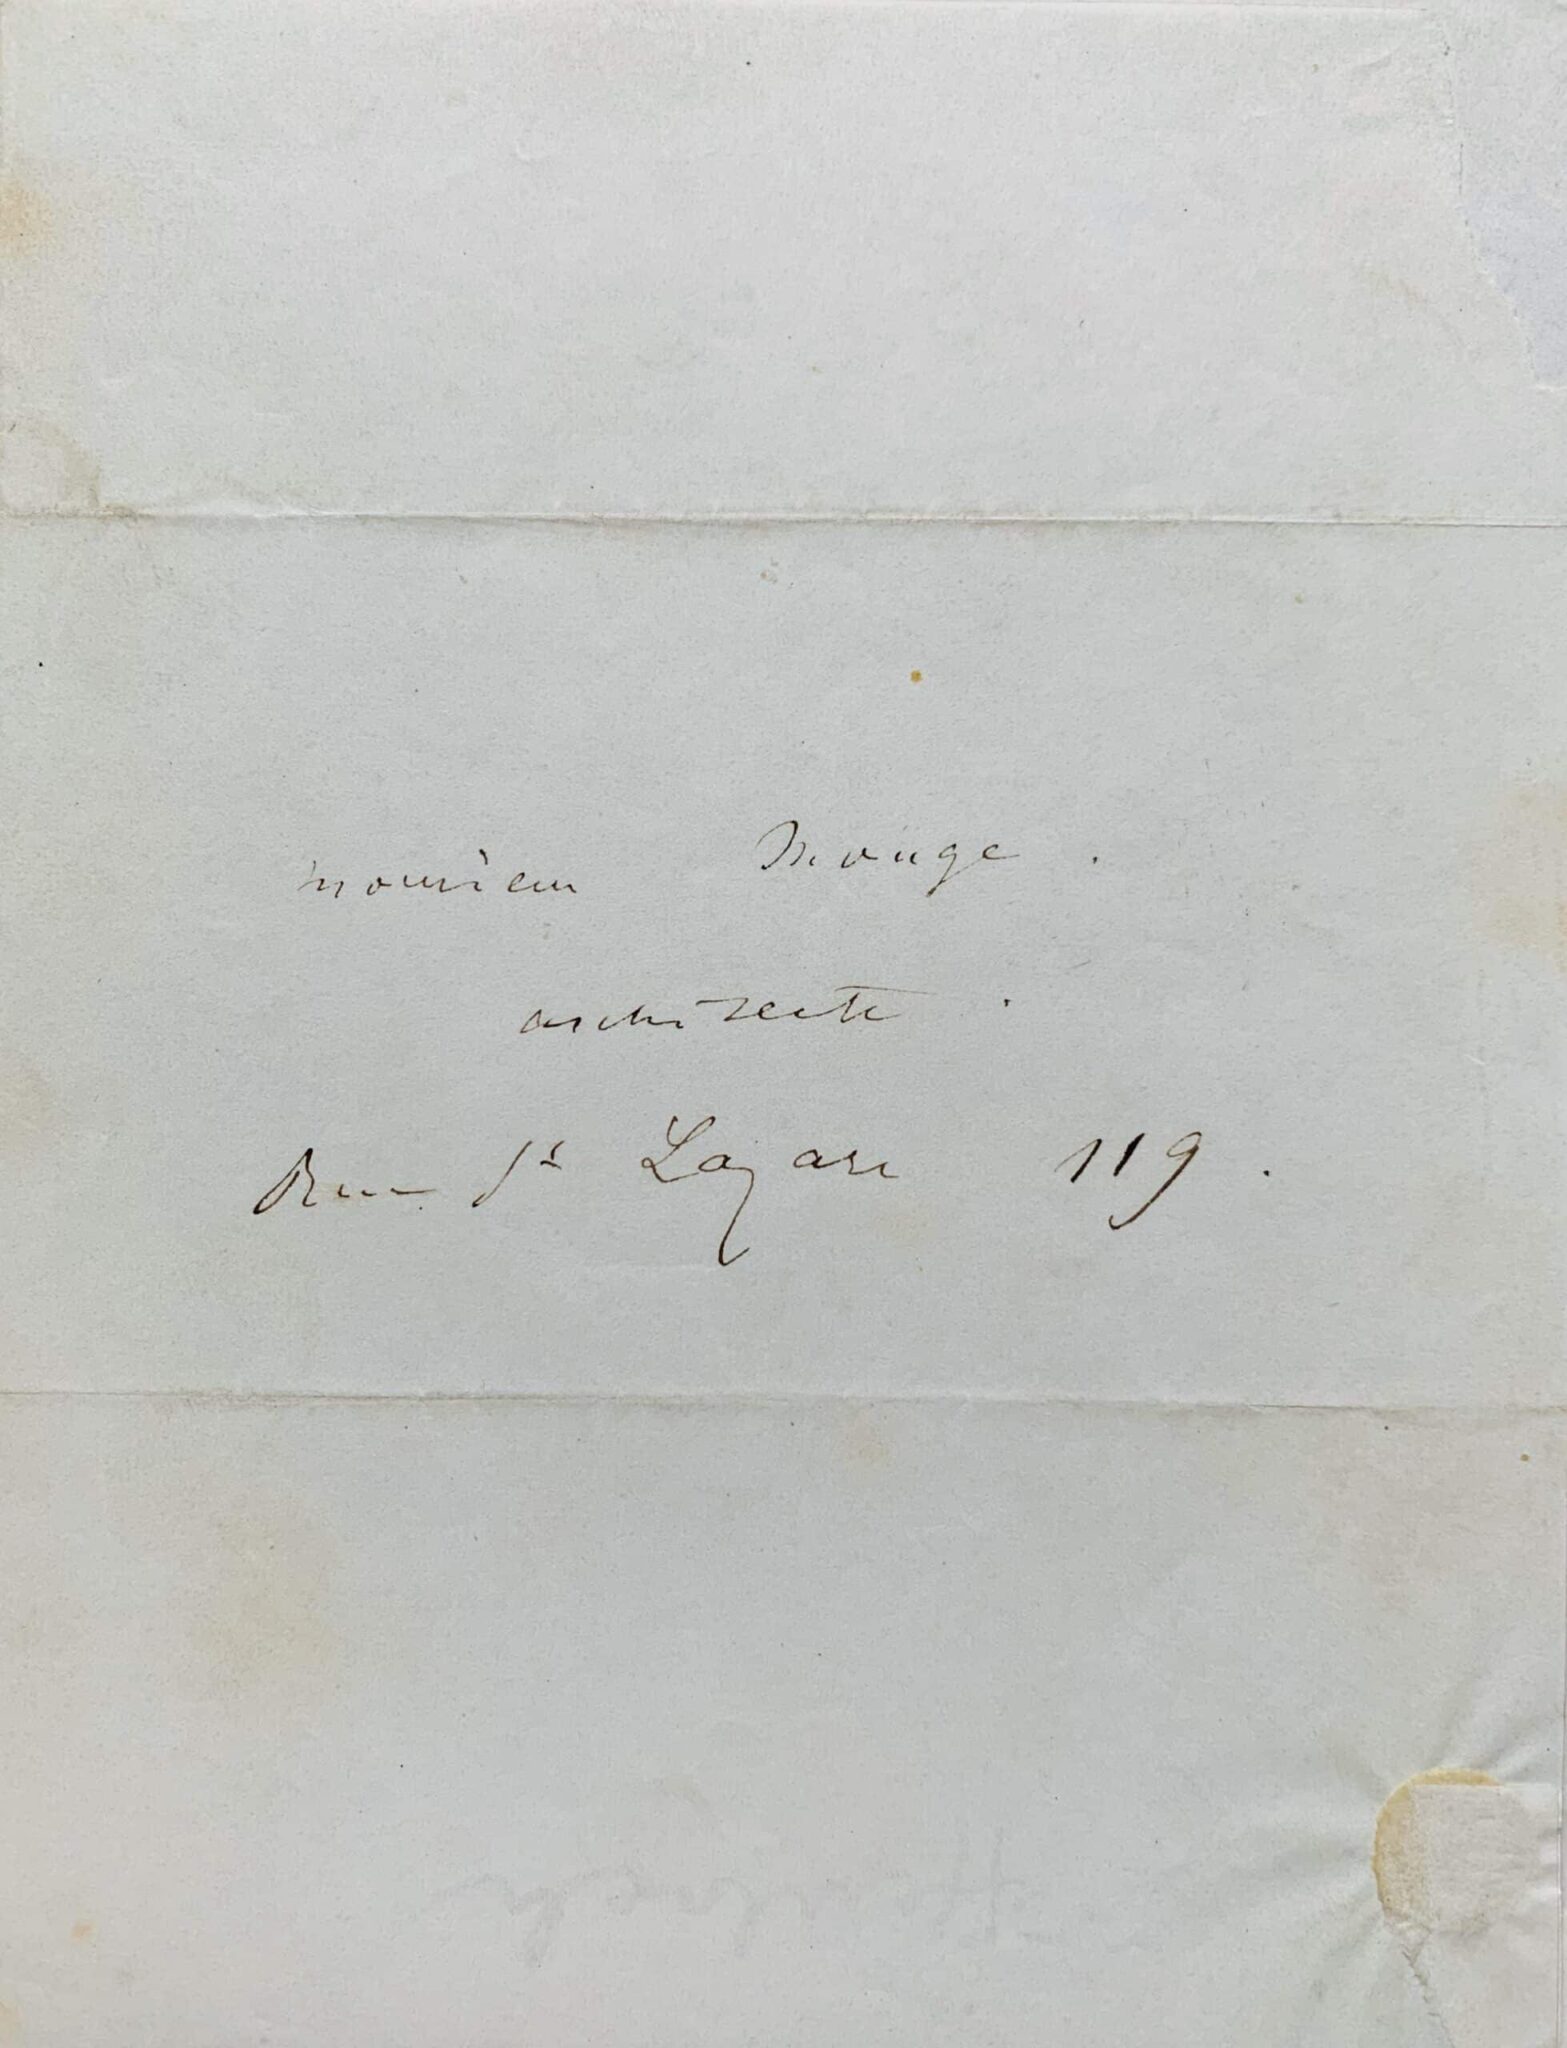 monsieur Monge.
architecte.
Rue St Lazare 119.